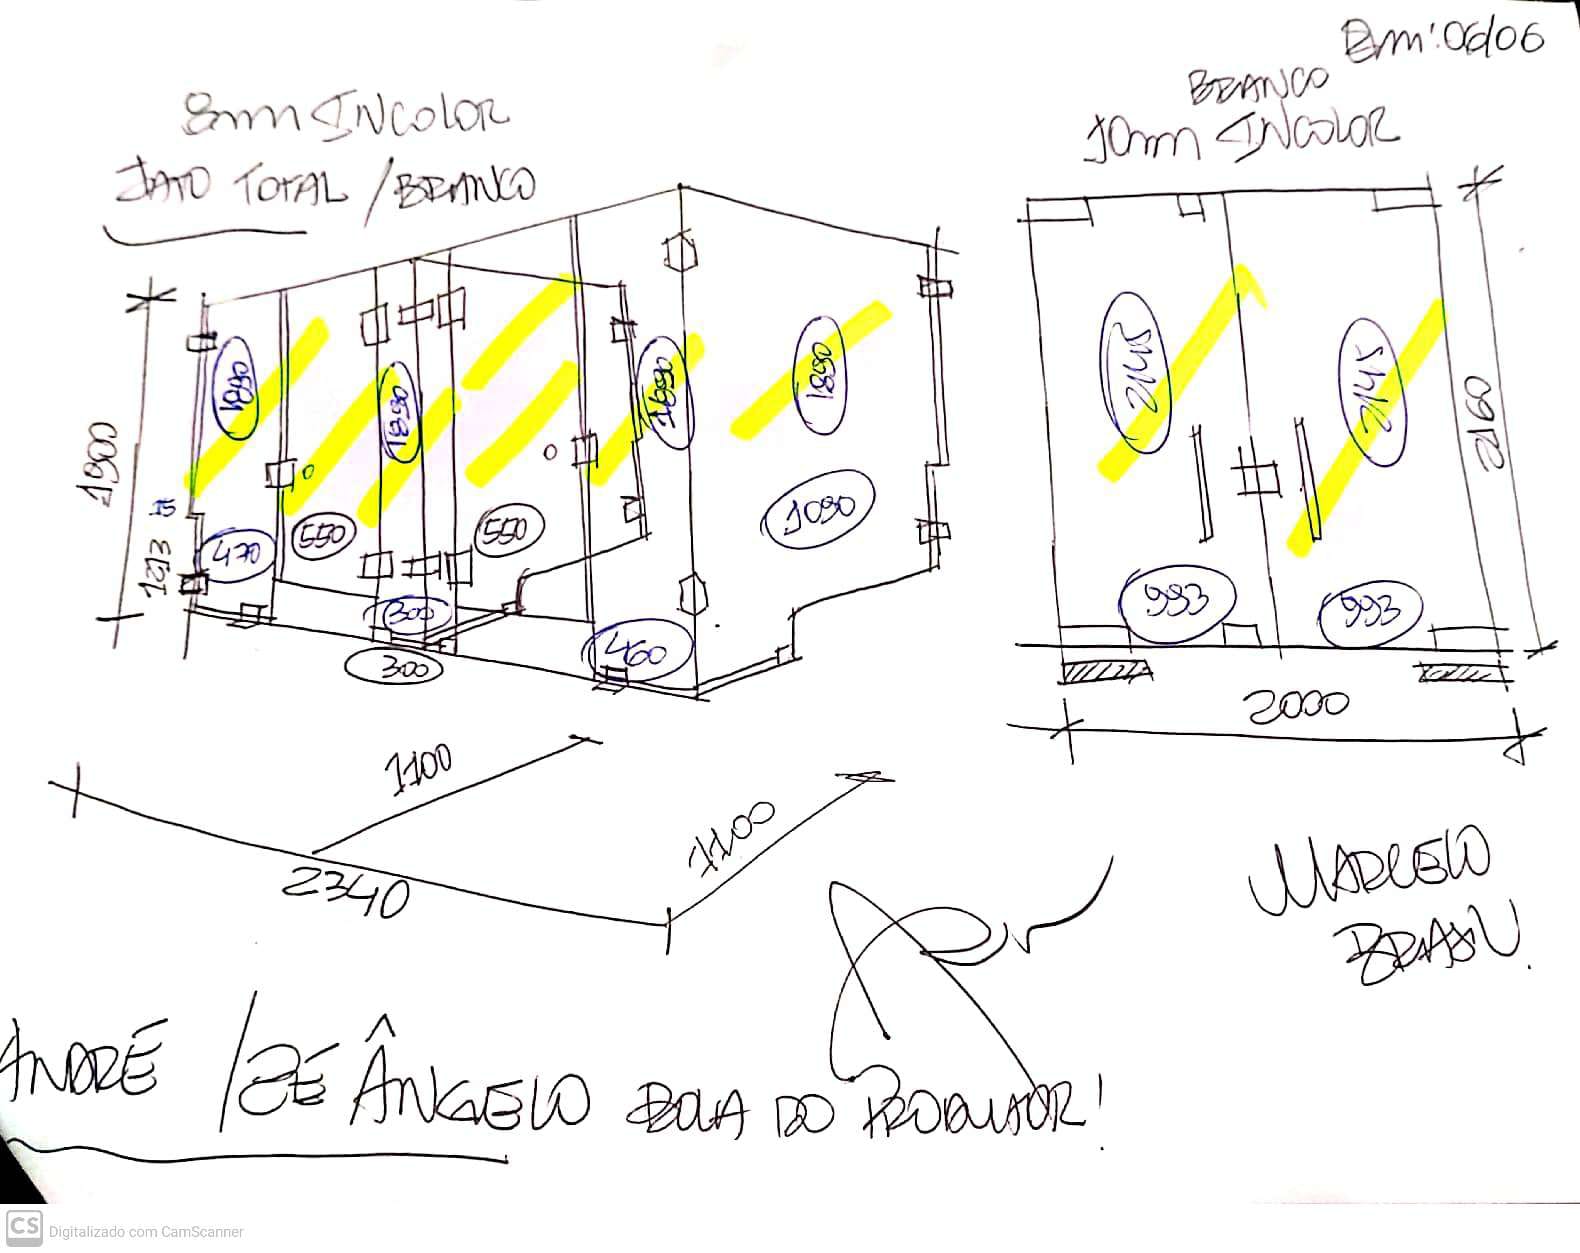 Em: 06/06
8mm INCOLOR
JATO TOTAL / BRANCO
BRANCO
10mm INCOLOR
1890
1890
1890
1890
1900
15
1213
470
550
550
1090
300
300
460
1100
2340
1100
2145
2145
2160
993
993
2000
MARCELO
BRASIL.
ANDRÉ / ZÉ ÂNGELO BOLA DO PRODUTOR!
CS Digitalizado com CamScanner